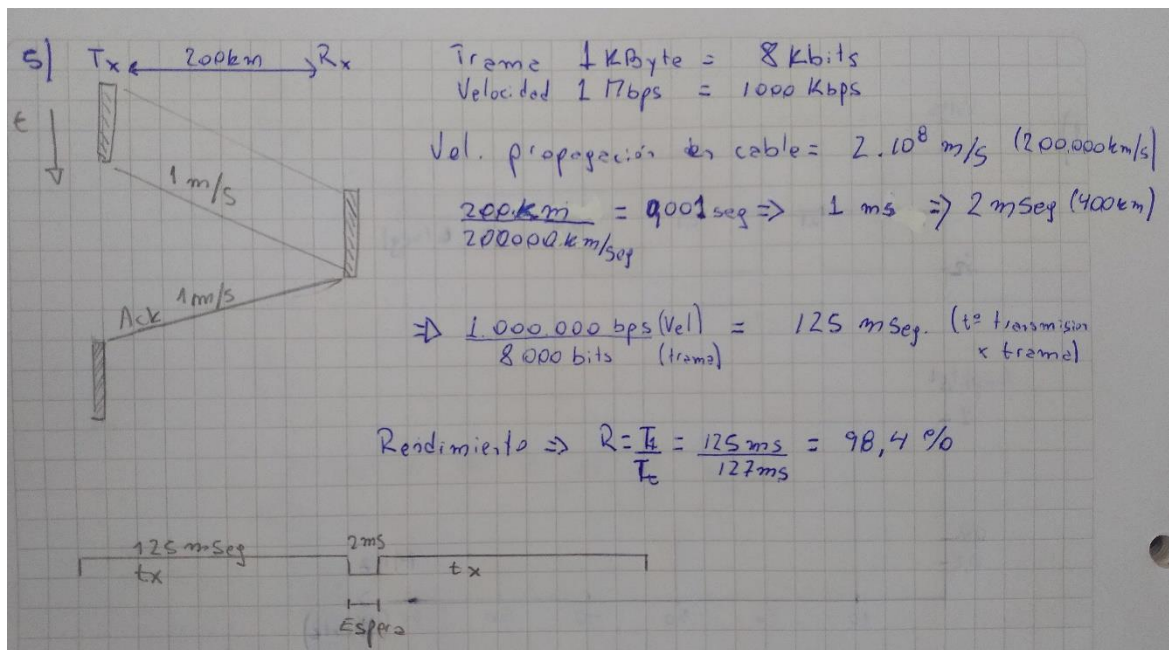 5| Tx 200km Rx
Trama 1 KByte = 8 Kbits
Velocidad 1 Mbps = 1000 Kbps
t
Vel. propagación en cable = 2.10⁸ m/s (200.000km/s)
1 m/s
200.km / 200000.km/seg = 0,001 seg => 1 ms => 2 mseg (400km)
Ack 1m/s
=> 1.000.000 bps (Vel) / 8000 bits (trama) = 125 mseg. (tº transmision x trama)
Rendimiento => R = Tt / Tt = 125 ms / 127ms = 98,4 %
125 mseg 2ms
tx tx
Espera